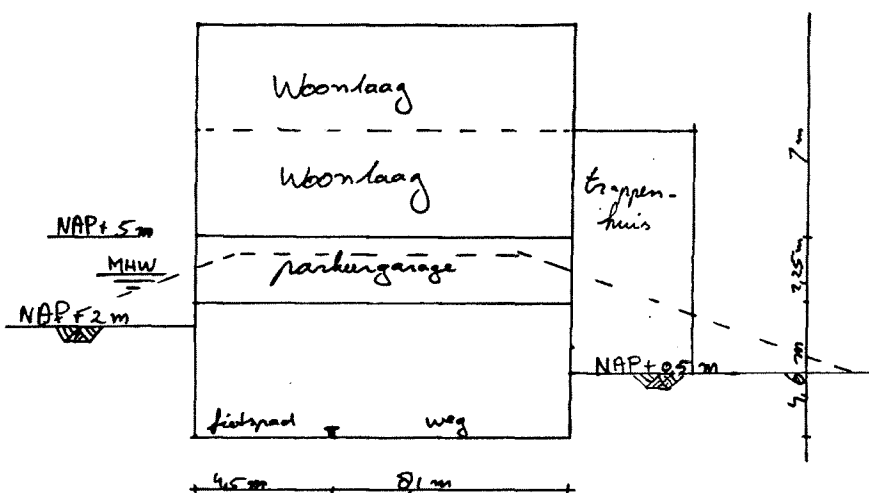 Woonlaag
Woonlaag
trappen-
huis
NAP+5m
MHW
parkeergarage
NAP+2m
NAP+0,5m
fietspad
weg
4,5m
8,1m
7m
2,25m
4,6m